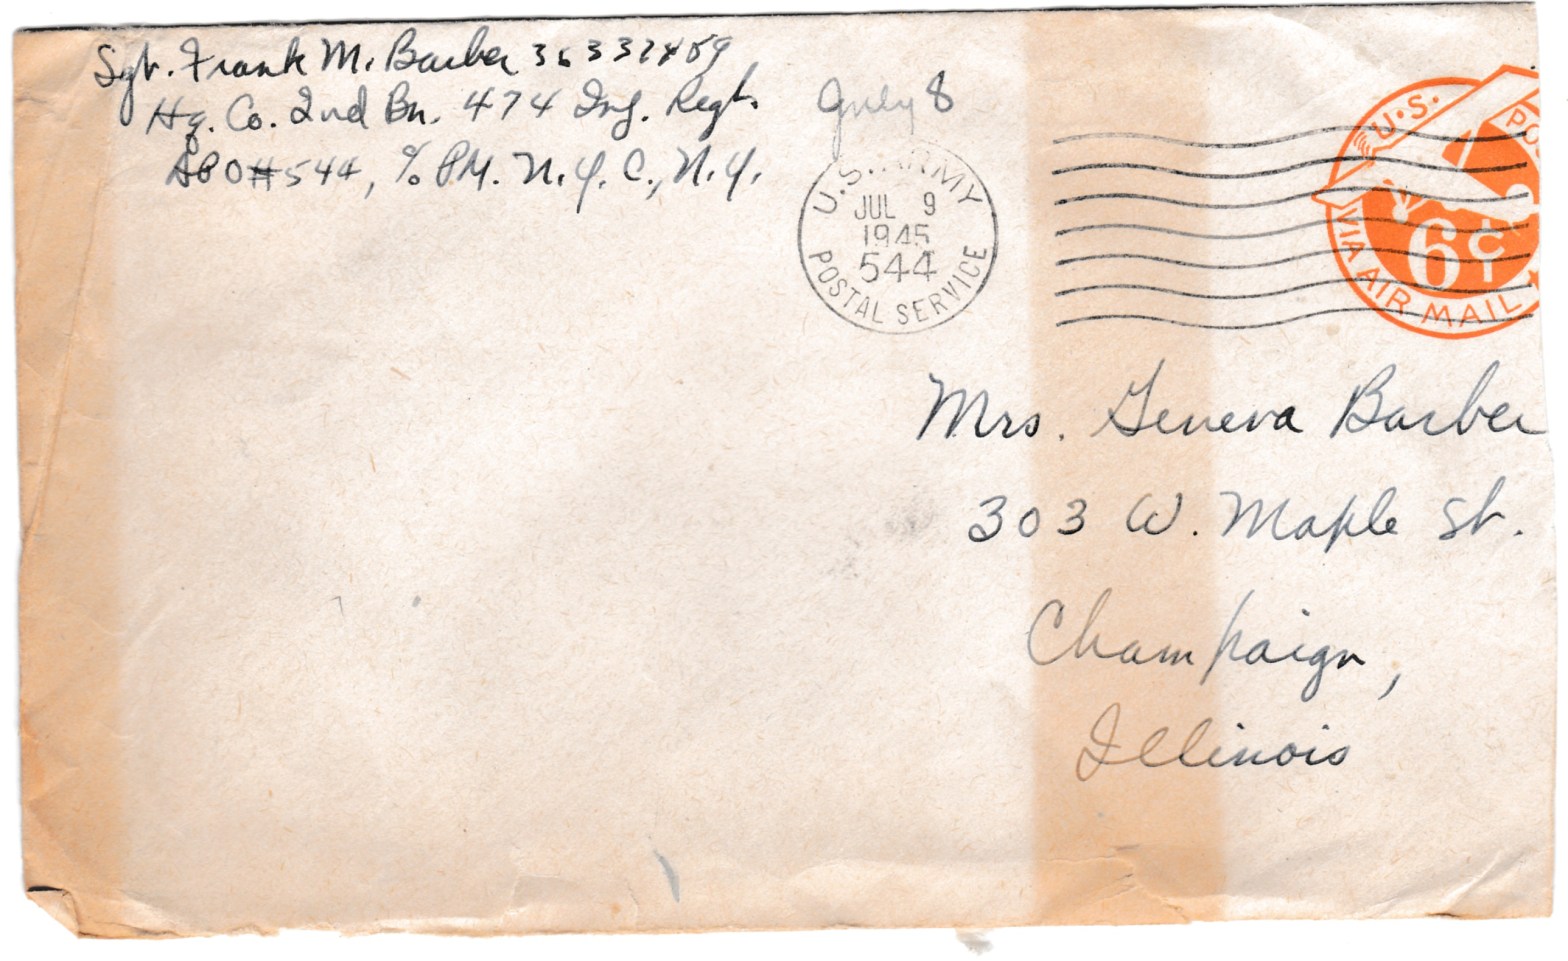 Sgt. Frank M. Barber 36337459
Hq. Co. 2nd Bn. 474 Inf. Regt.
APO #544, % P.M. N.Y.C., N.Y.
July 8
U.S. ARMY
JUL 9
1945
544
POSTAL SERVICE
U.S. POS
6¢
VIA AIR MAIL
Mrs. Geneva Barber
303 W. Maple St.
Champaign,
Illinois